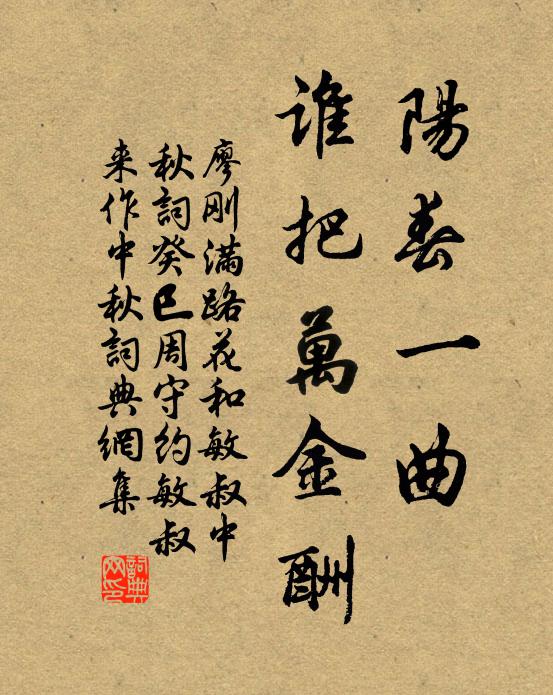 陽春一曲
誰把萬金酬
廖刚滿路花和敏叔中
秋詞癸巳周守約敏叔
来作中秋詞典網集
詞典網印